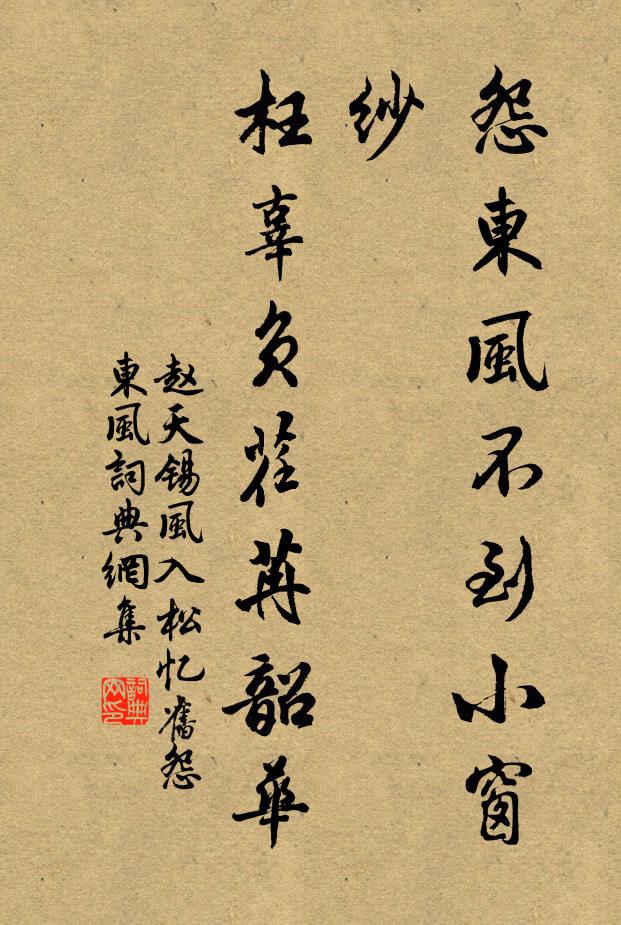 怨東風不到小窗
紗
枉辜負荏苒韶華
赵天锡風入松忆舊怨
東風詞典網集
詞典
网印